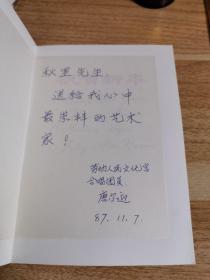 秋里先生
送给我心中
最崇拜的艺术
家！
劳动人民文化宫
合唱团员
唐尔
87.11.7.